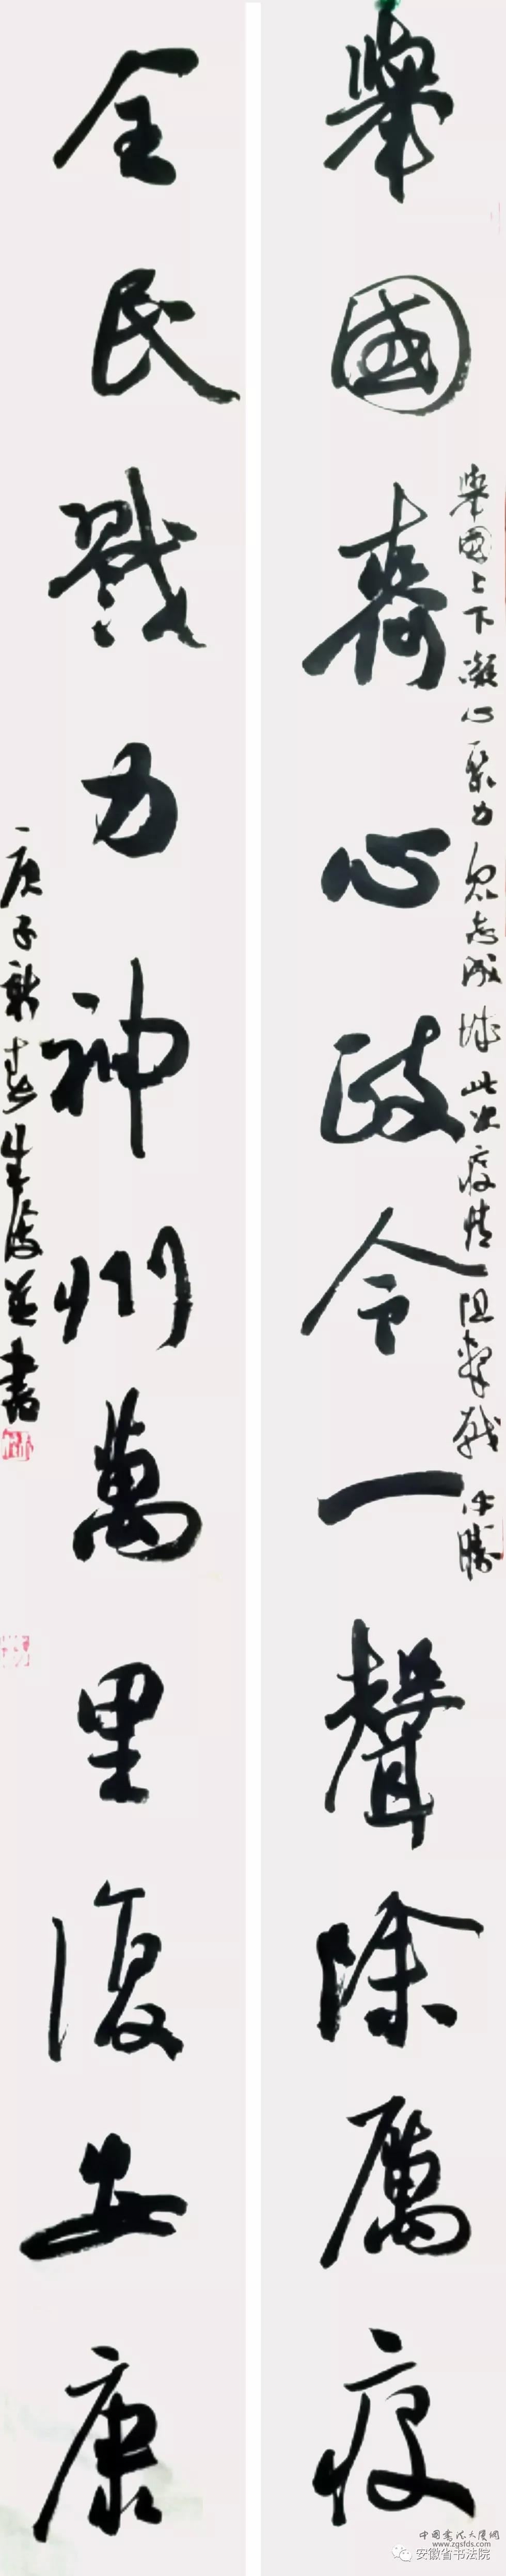 舉國齊心政令一聲除厲疫
舉國上下凝心聚力眾志成城此次疫情阻擊戰必勝
全民戮力神州萬里復安康
庚子新春生海並書
中国书法大厦网
www.zgsfds.com
安徽省书法院